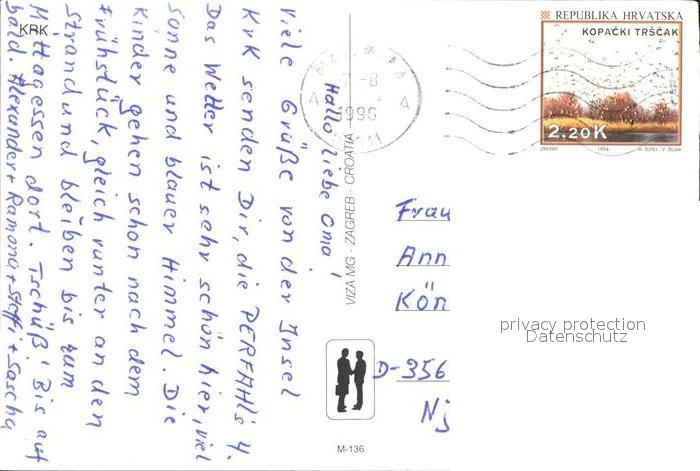 KRK
Hallo liebe Oma!
Viele Grüße von der Insel
Krk senden Dir, die PERFAHLs 4.
Das Wetter ist sehr schön hier, viel
Sonne und blauer Himmel. Die
Kinder gehen schon nach dem
Frühstück, gleich runter an den
Strand und bleiben bis zum
Mittagessen dort. Tschüß! Bis auf
bald. Alexander + Ramona + Steffi + Sascha
VIZA MG - ZAGREB - CROATIA
M-136
REPUBLIKA HRVATSKA
KOPAČKI TRŠČAK
2.20K
ZRINSKI 1994 M. ŠUTEJ, V. ŽILJAK
-8
1996
Frau
Ann
Kön
D-356
privacy protection
Datenschutz